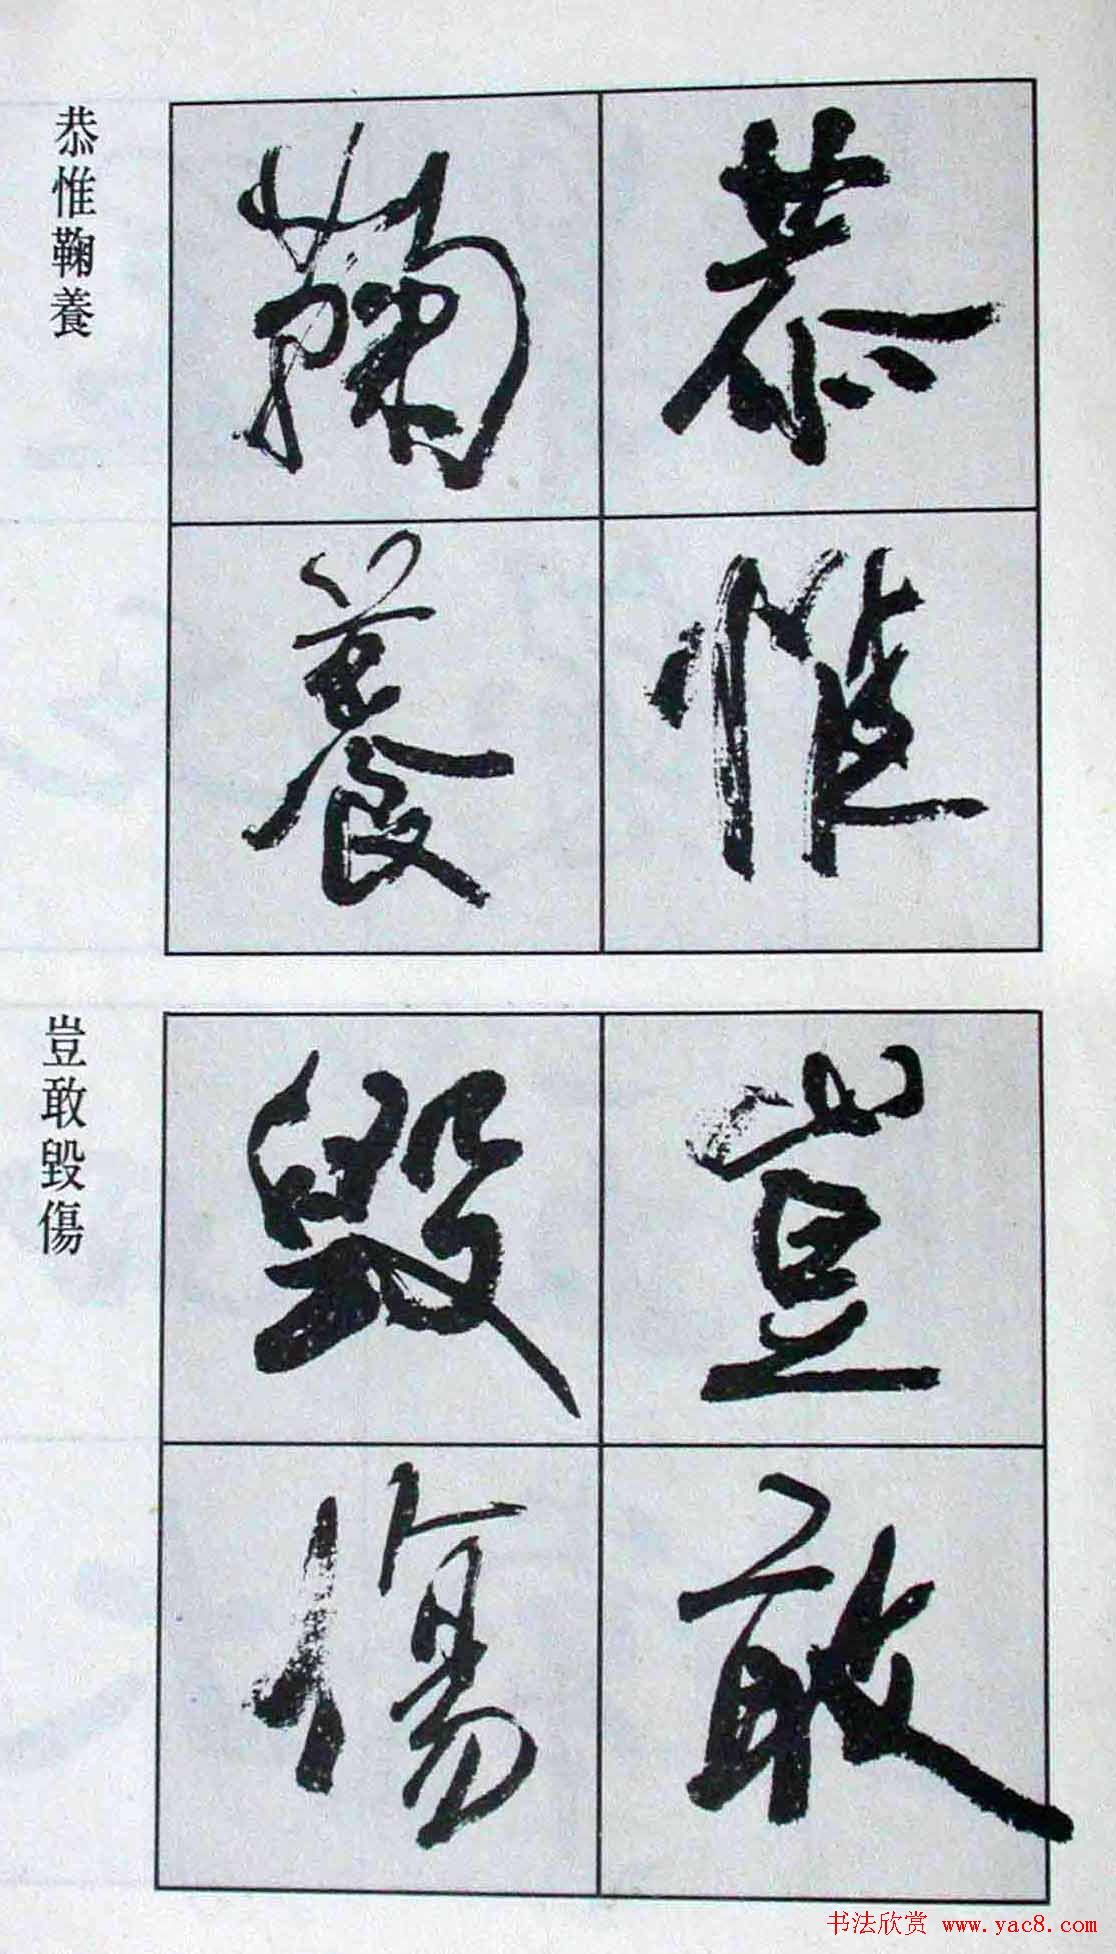 恭惟
鞠養
恭惟鞠養
豈敢
毀傷
豈敢毀傷
书法欣赏 www.yac8.com